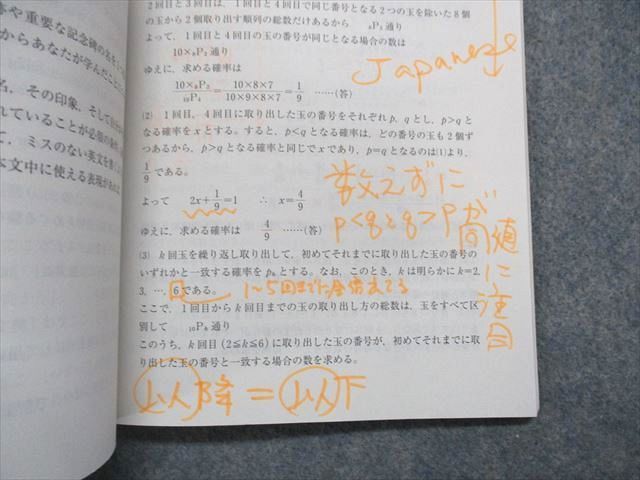 2回目と3回目は、1回目と4回目で同じ番号となる2つの玉を除いた8個
の玉から2個取り出す順列の総数だけあるから ₈P₂通り
よって、1回目と4回目の玉の番号が同じとなる場合の数は
10×₈P₂通り
ゆえに、求める確率は
10×₈P₂/₁₀P₄=10×8×7/10×9×8×7=1/9 ……(答)
Japanese
(2) 1回目、4回目に取り出した玉の番号をそれぞれp、qとし、p>qと
なる確率をxとする。すると、p<qとなる確率は、どの番号の玉も2個ず
つあるから、p>qとなる確率と同じでxであり、p=qとなるのは(1)より、
1/9である。
よって 2x+1/9=1 ∴ x=4/9
ゆえに、求める確率は 4/9 ……(答)
数えずに
p<qとq>pが
同値に注目
(3) k回玉を繰り返し取り出して、初めてそれまでに取り出した玉の番号の
いずれかと一致する確率をpₖとする。なお、このとき、kは明らかにk=2,
3, …, 6である。
1〜5回までに全
ここで、1回目からk回目までの玉の取り出し方の総数は、玉をすべて区
別して ₁₀Pₖ通り
このうち、k回目(2≦k≦6)に取り出した玉の番号が、初めてそれまでに取
り出した玉の番号と一致する場合の数を求める。
以降=以下
や重要な記念碑の名をい
からあなたが学んだこ
名、その印象、そして
れていることが必須の条件
て、ミスのない英文を書く
本文中に使える表現があれば